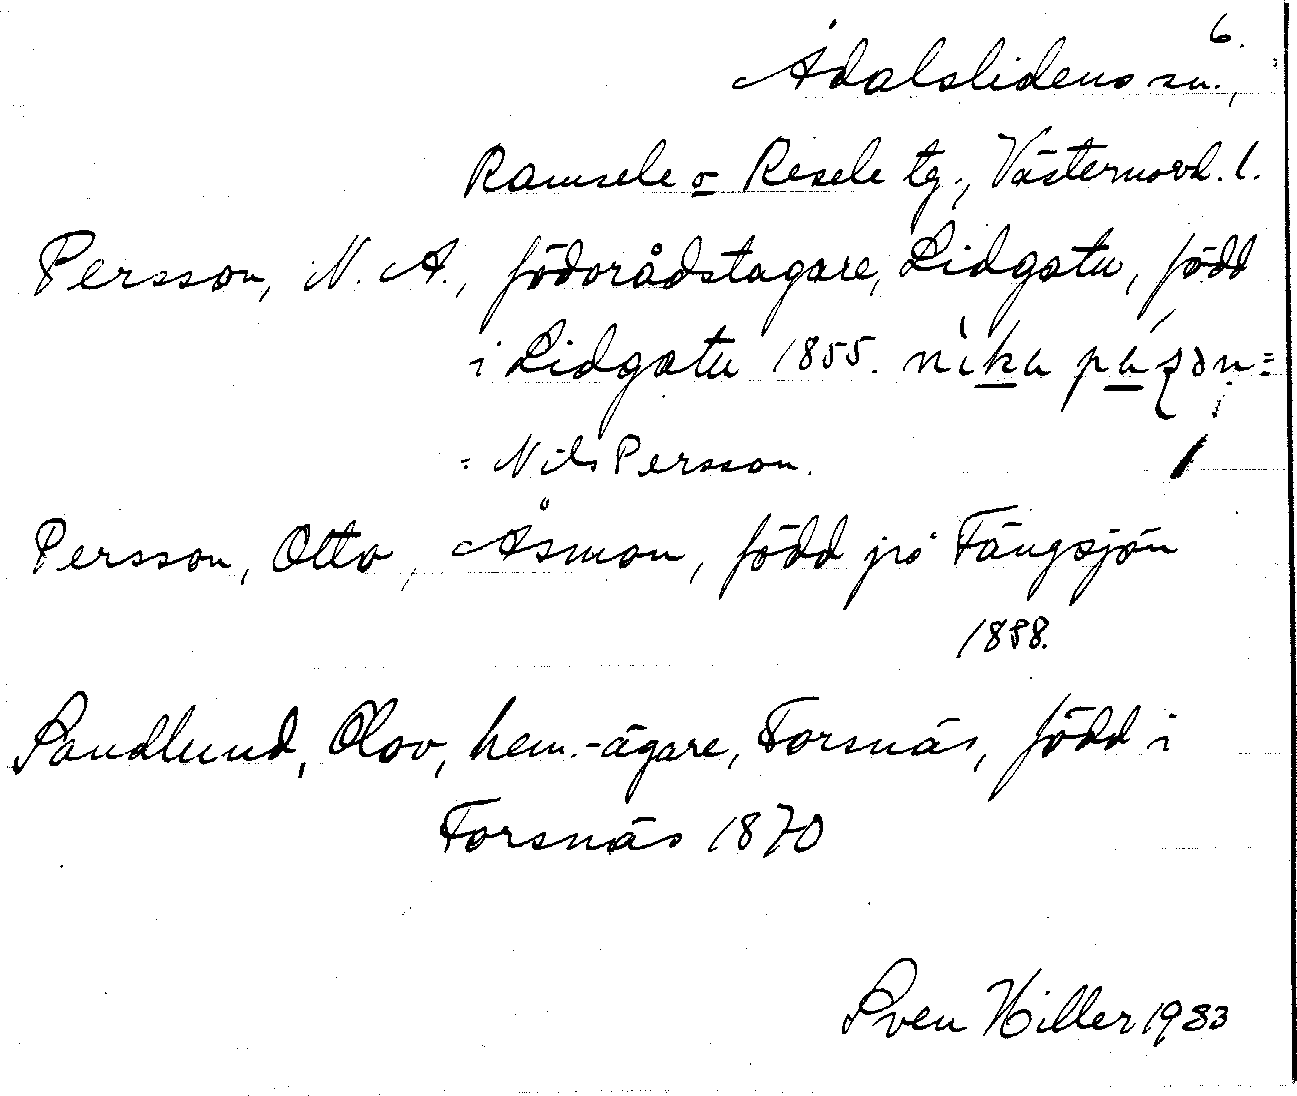 6.
Ådalslidens sn.,
Ramsele o Resele tg., Västernorrl. l.
Persson, N. A., födorådstagare, Lidgatu, född
i Lidgatu 1855.
= Nils Persson.
Persson, Otto, Åsmon, född på Tängsjön
1888.
Sandlund, Olov, hem.-ägare, Forsnäs, född i
Forsnäs 1870
Sven Hiller 1933